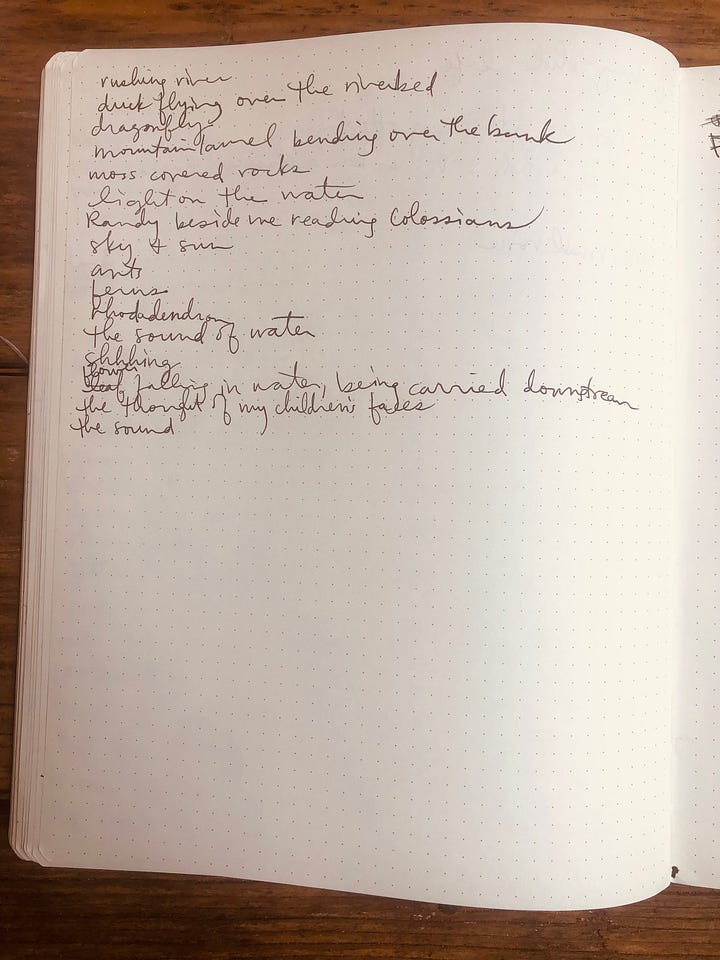 rushing river
duck flying over the riverbed
dragonfly
mountain laurel bending over the bank
moss covered rocks
light on the water
Randy beside me reading Colossians
sky & sun
ants
ferns
rhodadendron
the sound of water
shhhing
flower falling in water, being carried downstream
the thought of my children's faces
the sound